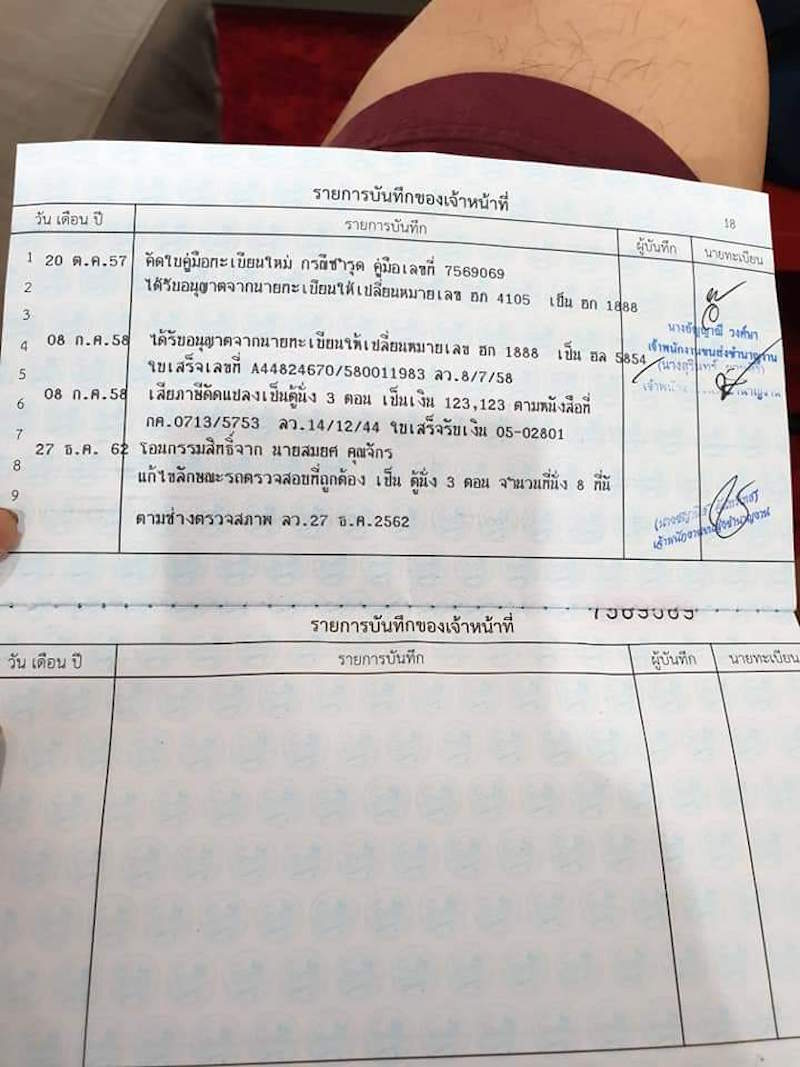 รายการบันทึกของเจ้าหน้าที่
18
วัน เดือน ปี รายการบันทึก ผู้บันทึก นายทะเบียน
1 20 ต.ค.57 คัดใบคู่มือทะเบียนใหม่ กรณีชำรุด คู่มือเลขที่ 7569069
2 ได้รับอนุญาตจากนายทะเบียนให้เปลี่ยนหมายเลข ฮภ 4105 เป็น ฮก 1888
3
นางธัญญาณี วงศ์ษา
4 08 ก.ค.58 ได้รับอนุญาตจากนายทะเบียนให้เปลี่ยนหมายเลข ฮก 1888 เป็น ฮล 5854
เจ้าพนักงานขนส่งชำนาญงาน
5 ใบเสร็จเลขที่ A44824670/580011983 ลว.8/7/58
6 08 ก.ค.58 เสียภาษีดัดแปลงเป็นตู้นั่ง 3 ตอน เป็นเงิน 123,123 ตามหนังสือที่
7 กค.0713/5753 ลว.14/12/44 ใบเสร็จรับเงิน 05-02801
8 27 ธ.ค. 62 โอนกรรมสิทธิ์จาก นายสมยศ คุณจักร
9 แก้ไขลักษณะรถตรวจสอบที่ถูกต้อง เป็น ตู้นั่ง 3 ตอน จำนวนที่นั่ง 8 ที่นั
ตามช่างตรวจสภาพ ลว.27 ธ.ค.2562
เจ้าพนักงานขนส่งชำนาญงาน
7569069
รายการบันทึกของเจ้าหน้าที่
วัน เดือน ปี รายการบันทึก ผู้บันทึก นายทะเบียน